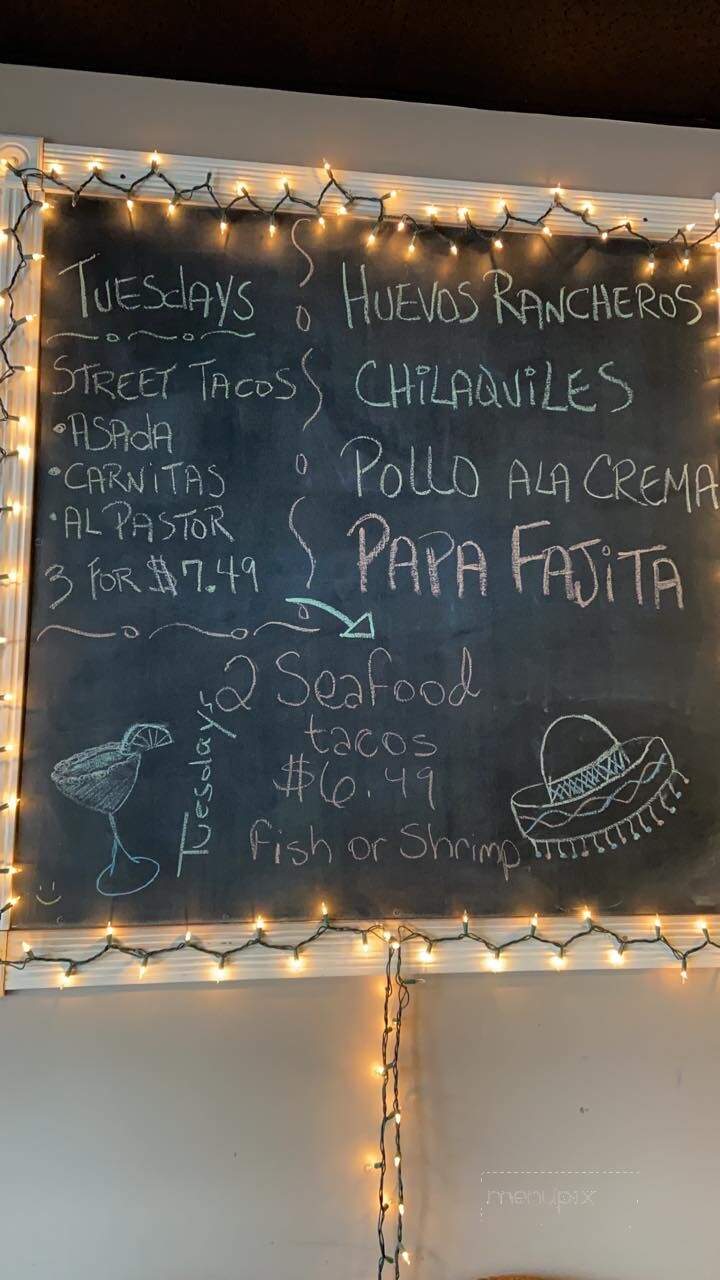 TUESdAYS
STREET TACOS
•ASAdA
•CARNiTAS
•AL PASTOR
3 FOR $7.49
HUEVOS RANCHEROS
CHiLAQUiLES
POLLO ALA CREMA
PAPA FAJiTA
Tuesdays
2 Seafood
tacos
$6.49
fish or Shrimp
menupix